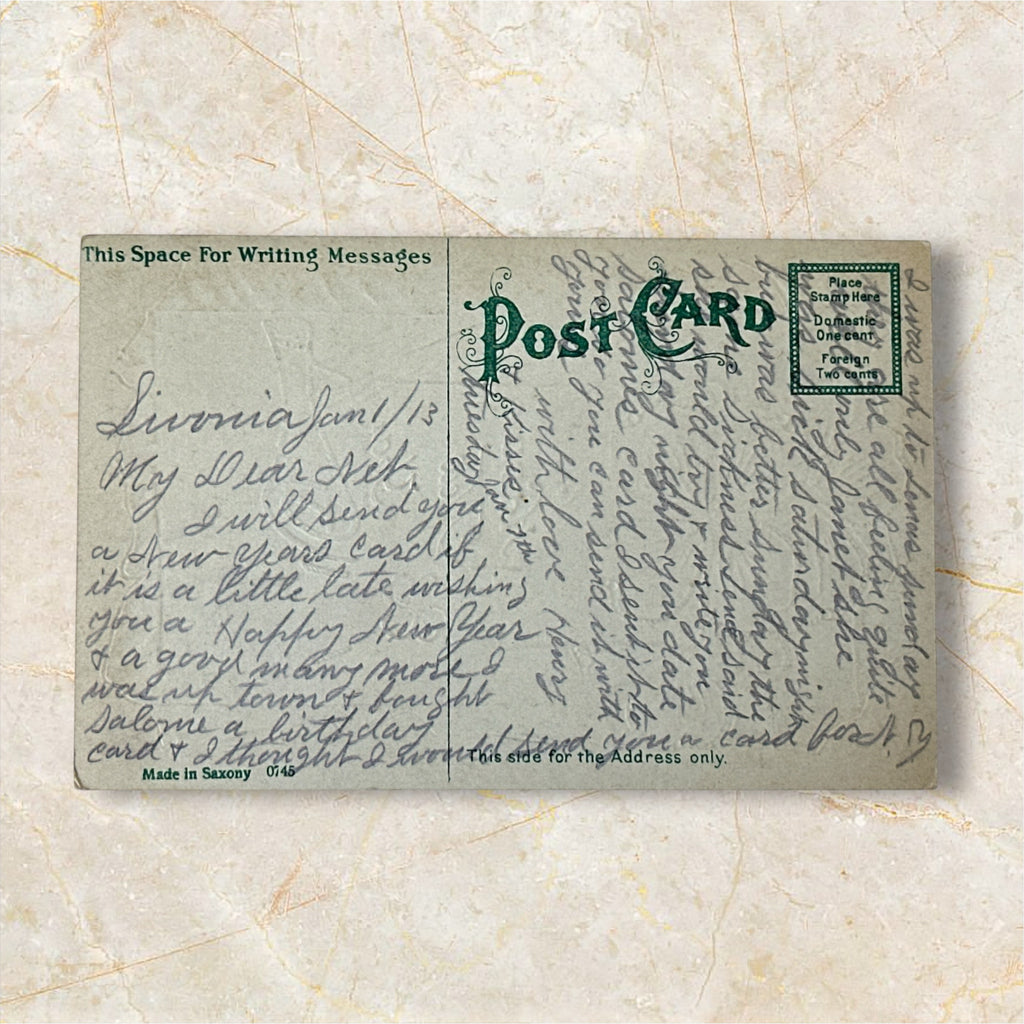 This Space For Writing Messages
POST CARD
Place
Stamp Here
Domestic
One cent
Foreign
Two cents
Livonia Jan 1/13
My Dear Net.
I will send you
a New Years card if
it is a little late wishing
you a Happy New Year
& a good many more I
was up town & bought
Salome a birthday
card & I thought I would send you a card for N. Y.
I was up to Sunday
they are all feeling quite
well only Janet she
was sick saturday night
but was better Sunday the
same sickness Lena said
she would try & write you
Sunday night you date
Salomes card I sent it to
you so you can send it with
yours
with love Henry
kisses
Tuesday Jan 7th
Made in Saxony 0745
This side for the Address only.